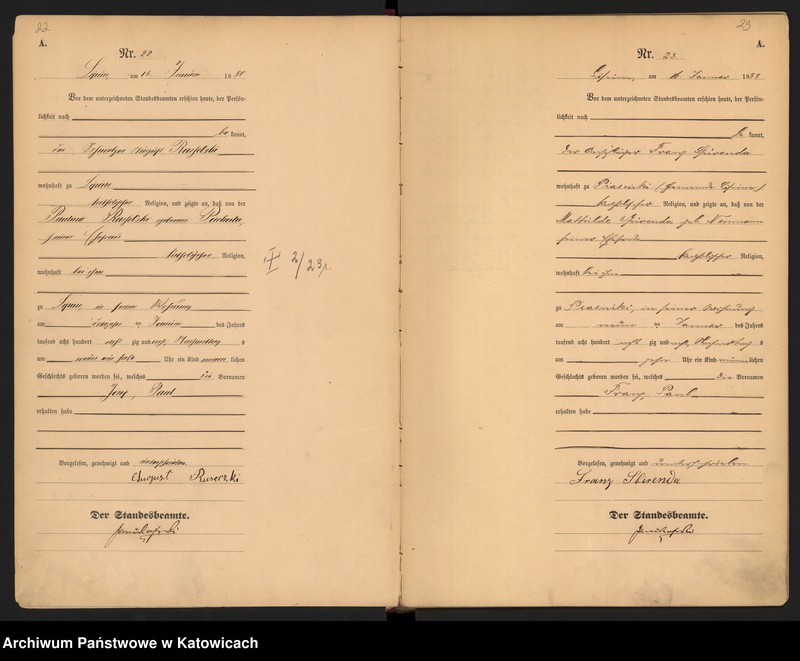 22
A.
Nr. 22
am 16. Januar 1888
Vor dem unterzeichneten Standesbeamten erschien heute, der Persön-
lichkeit nach
be kannt,
der August
wohnhaft zu
katholischer Religion, und zeigte an, daß von der
Paulina geborene
seiner Ehefrau
katholischer Religion,
wohnhaft bei ihm
zu in seiner Wohnung
am Januar des Jahres
tausend acht hundert acht zig und acht, Nachmittags
um neun ein halb Uhr ein Kind männ lichen
Geschlechts geboren worden sei, welches die Vornamen
Josef, Paul
erhalten habe
Vorgelesen, genehmigt und unterschrieben
August Ruseczki
Der Standesbeamte.
I 2/23 r.
23
A.
Nr. 23
am 16. Januar 1888
Vor dem unterzeichneten Standesbeamten erschien heute, der Persön-
lichkeit nach
be kannt,
der Franz
wohnhaft zu Piasniki (Gemeinde
katholischer Religion, und zeigte an, daß von der
Mathilde geb. Neumann
seiner Ehefrau
katholischer Religion,
wohnhaft bei ihm
zu Piasniki, in seiner Wohnung
am neun Januar des Jahres
tausend acht hundert acht zig und acht, Nachmittags
um zehn Uhr ein Kind männlichen
Geschlechts geboren worden sei, welches die Vornamen
Franz, Paul
erhalten habe
Vorgelesen, genehmigt und unterschrieben
Franz Sbirenda
Der Standesbeamte.
Archiwum Państwowe w Katowicach